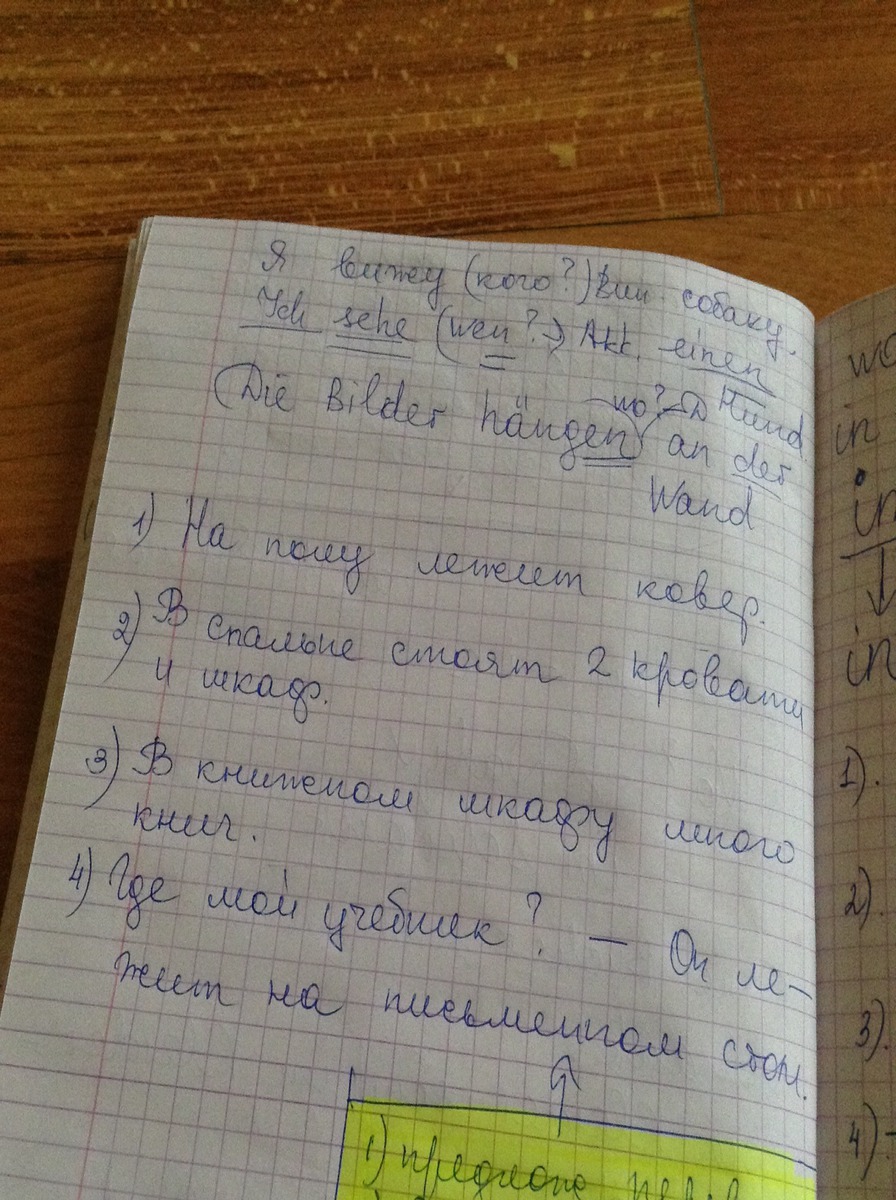 Я вижу (кого?) Вин. собаку.
Ich sehe (wen?→) Akk. einen
Hund.
wo?→D
(Die Bilder hängen an der
Wand
1) На полу лежит ковер.
2) В спальне стоят 2 кровати
и шкаф.
3) В книжном шкафу много
книг.
4) Где мой учебник? — Он ле-
жит на письменном столе.
1)
wo
in
in
in
1).
2).
3).
4)